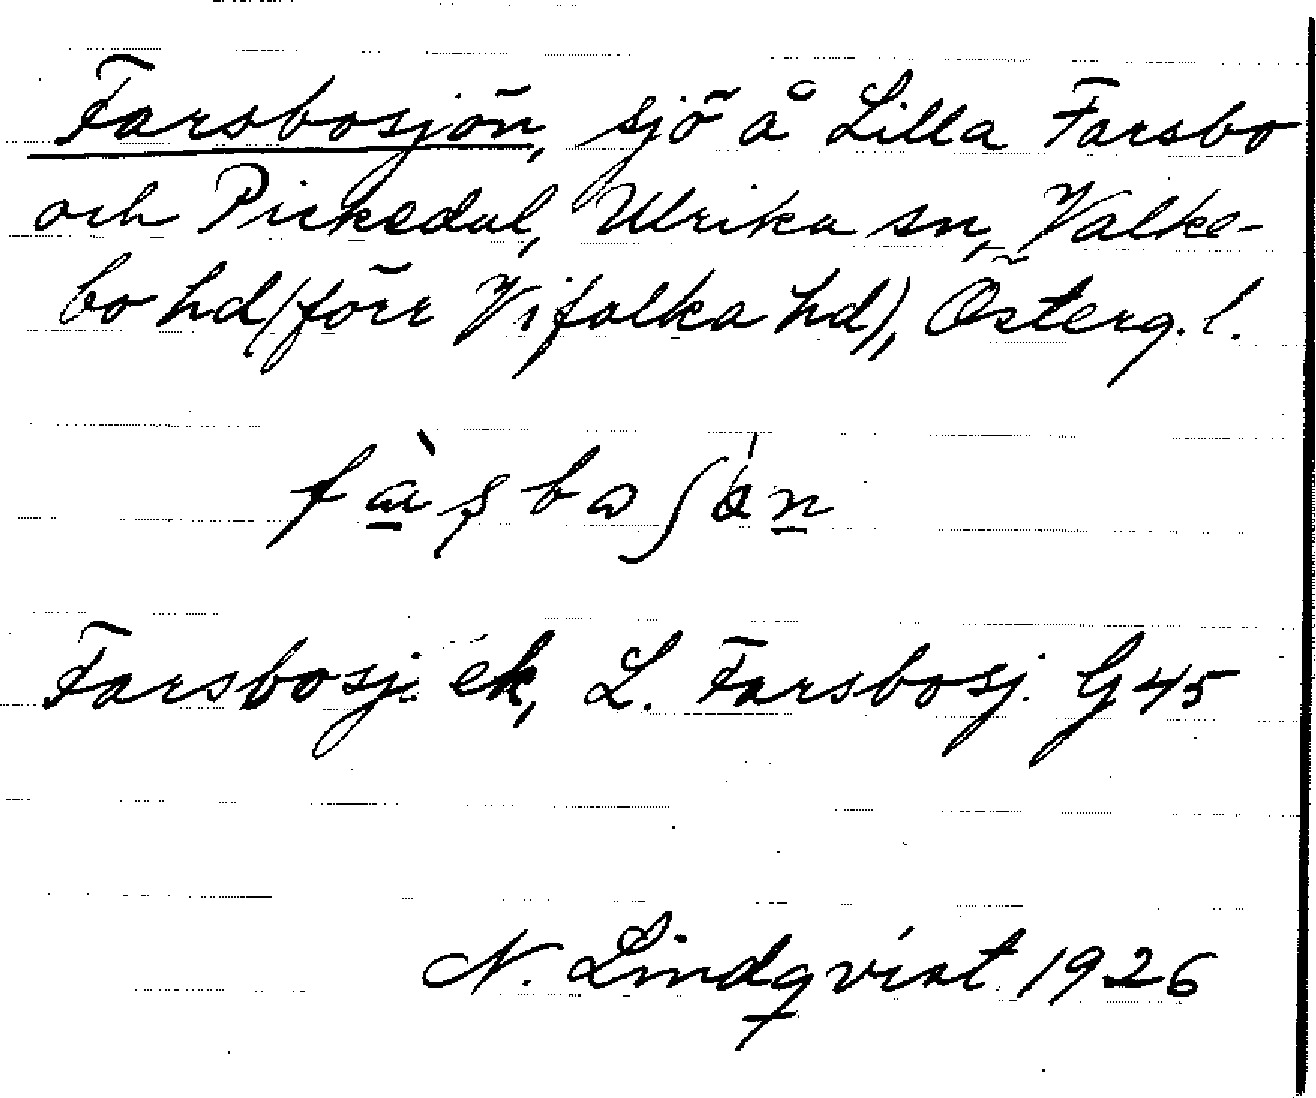 Farsbosjön, sjö å Lilla Farsbo
och Picksdal, Ulrika sn, Valke-
bo hd (förr Vifolka hd), Österg. l.
Farsbosj. ek, L. Farsbosj. G 45
N. Lindqvist 1926